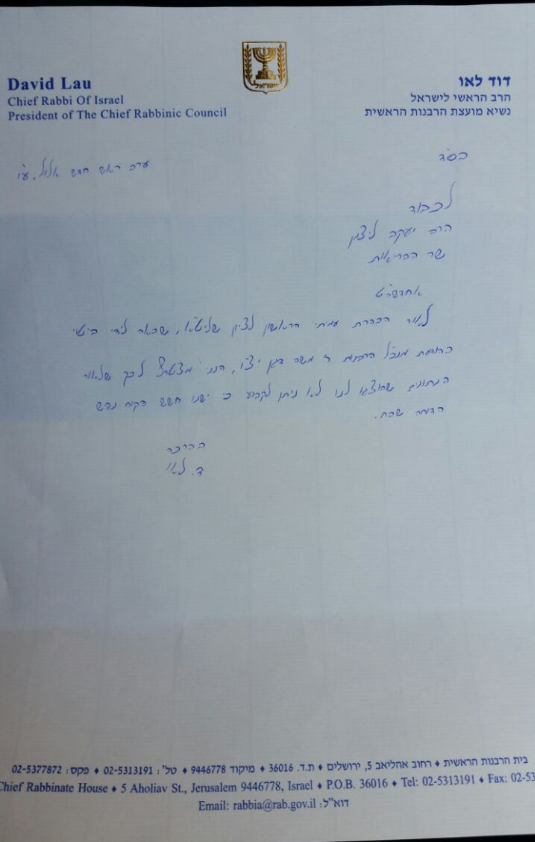 David Lau
Chief Rabbi Of Israel
President of The Chief Rabbinic Council
דוד לאו
הרב הראשי לישראל
נשיא מועצת הרבנות הראשית
ישראל
בס"ד
ערב ראש חדש אלול, ע"ו
לכבוד
הרב יעקב ליצמן
שר הבריאות
אחדשה"ט
לאור הכרעת עמיתי הראשון לציון שליט"א, שבאה לידי ביטוי
הרבנות ר' משה דגן יצ"ו, הנני מצטרף לכך שלאור
הנתונים שהוצגו לנו לא ניתן לקבוע כי ישנו חשש פקוח נפש
הדוחה שבת.
בברכה
ד. לאו
בית הרבנות הראשית ♦ רחוב אהליאב 5, ירושלים ♦ ת.ד. 36016 ♦ מיקוד 9446778 ♦ טל': 02-5313191 ♦ פקס: 02-5377872
Chief Rabbinate House ♦ 5 Aholiav St., Jerusalem 9446778, Israel ♦ P.O.B. 36016 ♦ Tel: 02-5313191 ♦ Fax: 02-53
Email: rabbia@rab.gov.il :דוא"ל